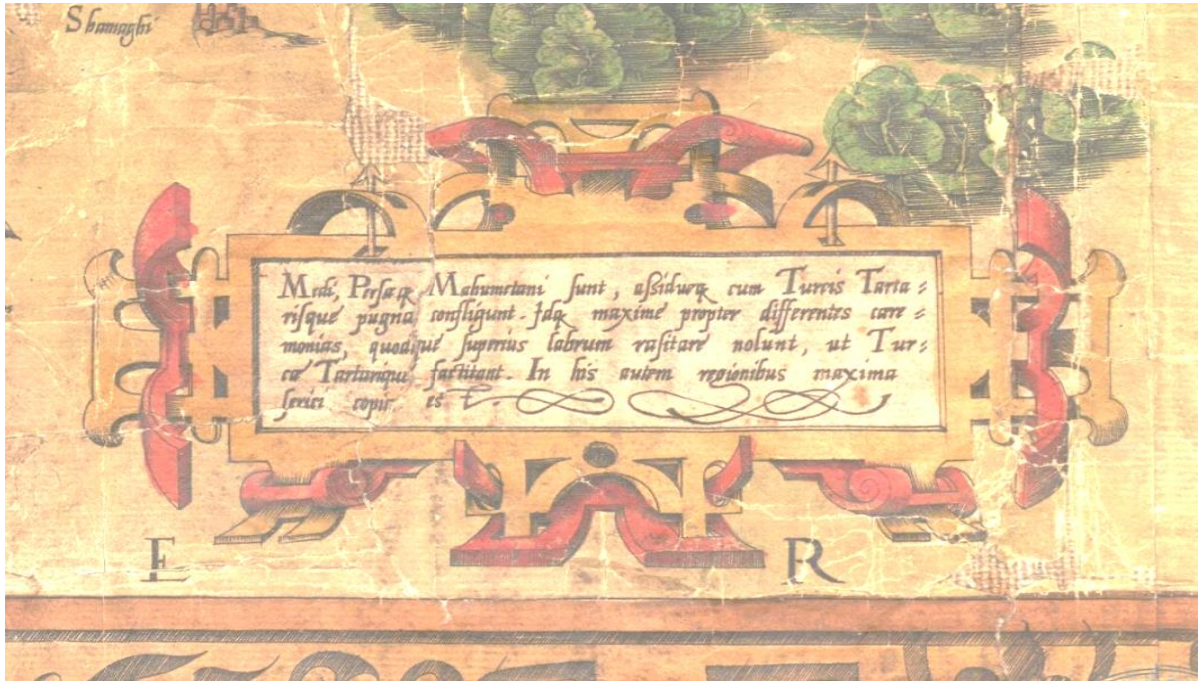 Shamaghi
Medi, Persæq Mahumetani sunt, assidueq cum Turcis Tarta:
risque pugna confligunt. Idq maxime propter differentes care:
monias, quodque superius labrum rasitare nolunt, ut Tur:
cæ Tartarique factitant. In his autem regionibus maxima
serici copia est.
E R